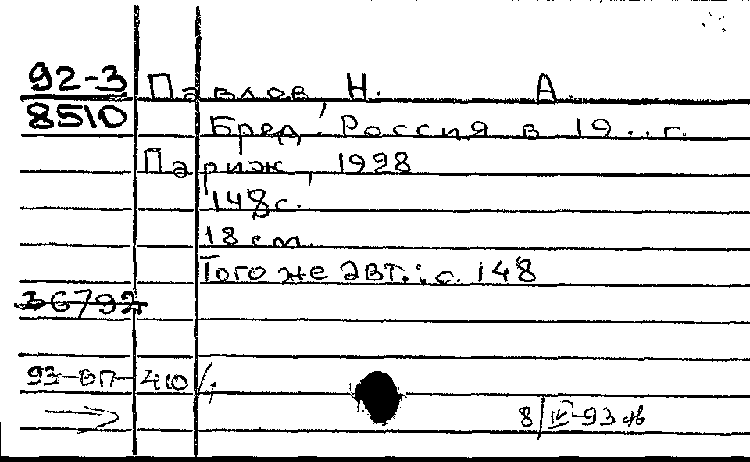 92-3 Павлов Н. А.
8510 Бред! Россия в 19... г.
Париж, 1928
148 с.
18 см.
Того же авт.: с. 148
36792
93-ВП-410/
8/IV-93